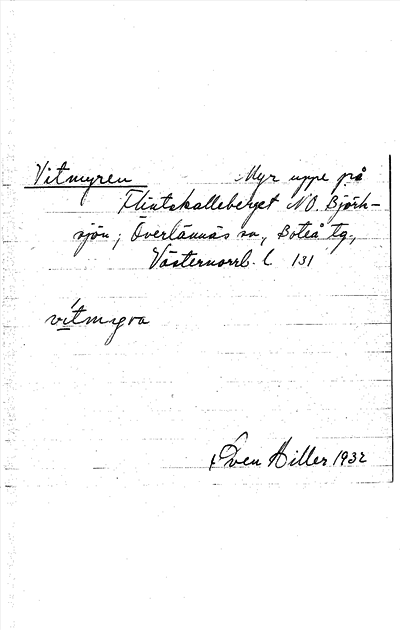 Vitmyren Myr uppe på
Flintskalleberget NO. Björk-
sjön; Överlännäs sn, Boteå tg,
Västernorrl. l. 131
vitmyra
Sven Hiller 1932